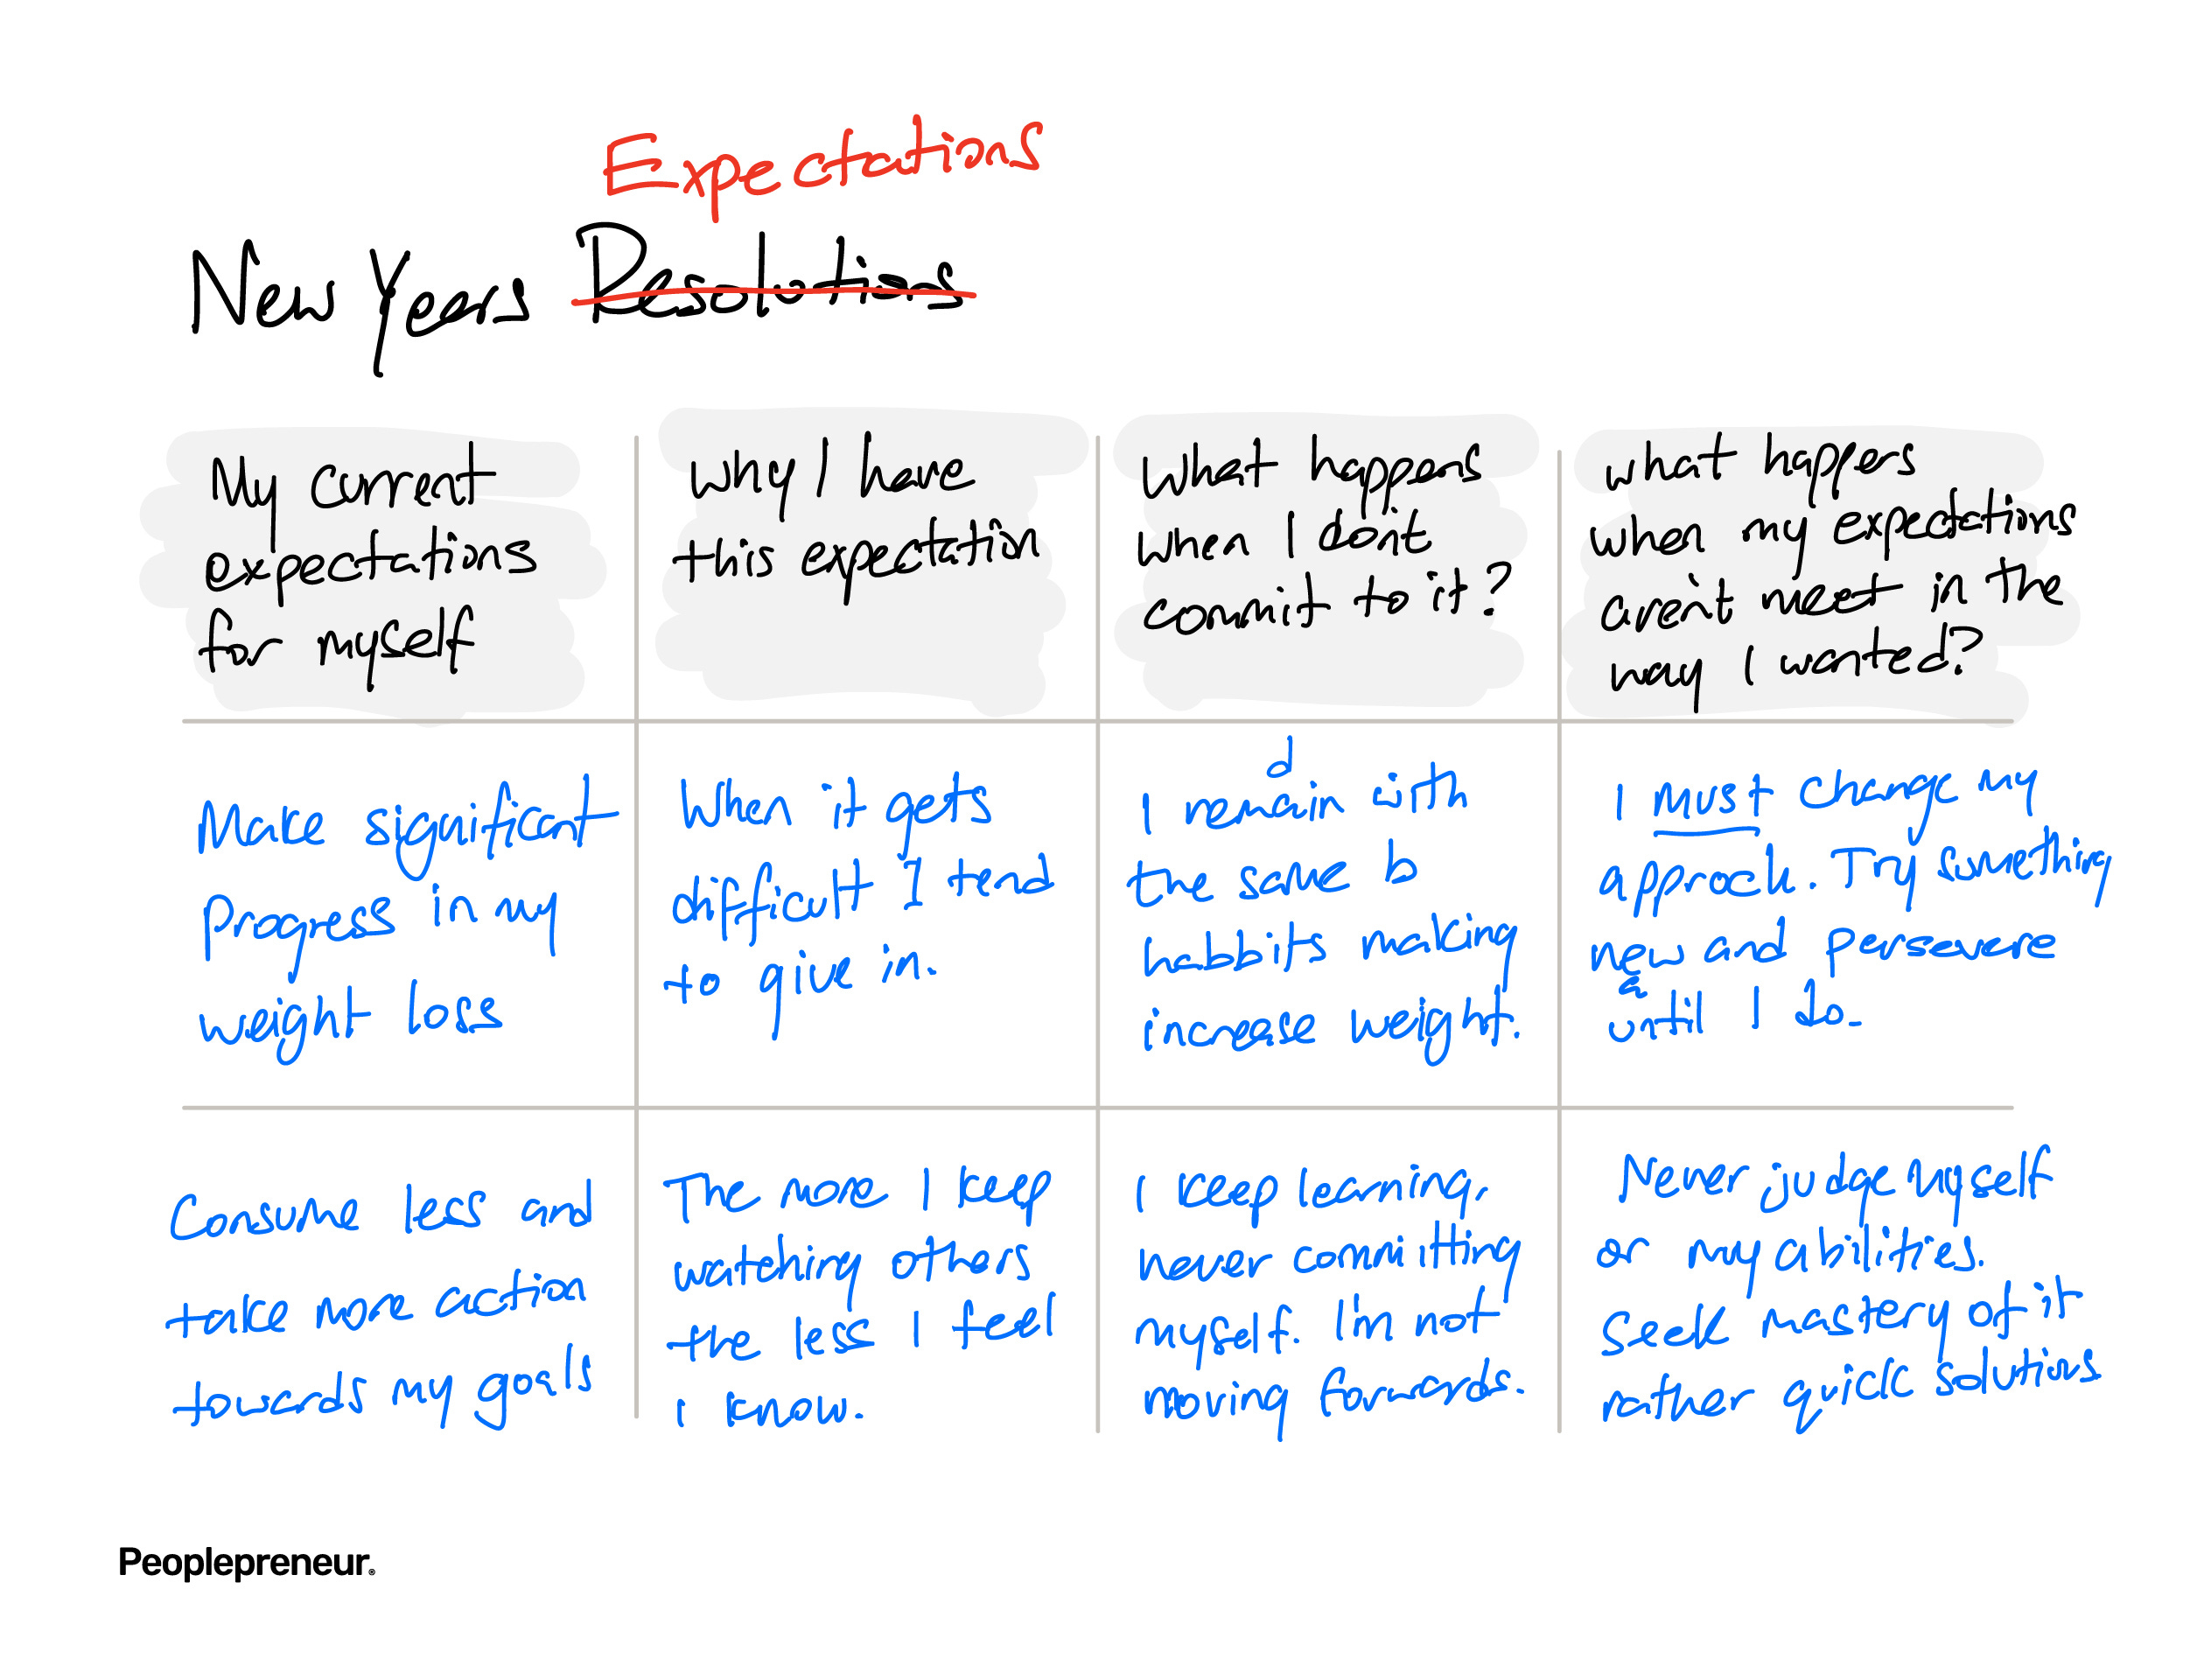 Expectations
New Years Resolutions
My current
expectations
for myself
why I have
this expectation
What happens
when I don't
commit to it?
what happens
when my expectations
aren't meet in the
way I wanted?
Make significant
Progress in my
weight loss
When it gets
difficult I tend
to give in.
d
I remain with
the same b
habbits making
increase weight.
I must change my
approach. Try something
new and persevere
until I do.
Consume less and
take more action
towards my goals
The more I keep
watching others
the less I feel
i know.
I keep learning,
never committing
myself. I'm not
moving forwards.
Never judge myself
or my abilities.
Seek mastery of it
rather quick solutions
Peoplepreneur.